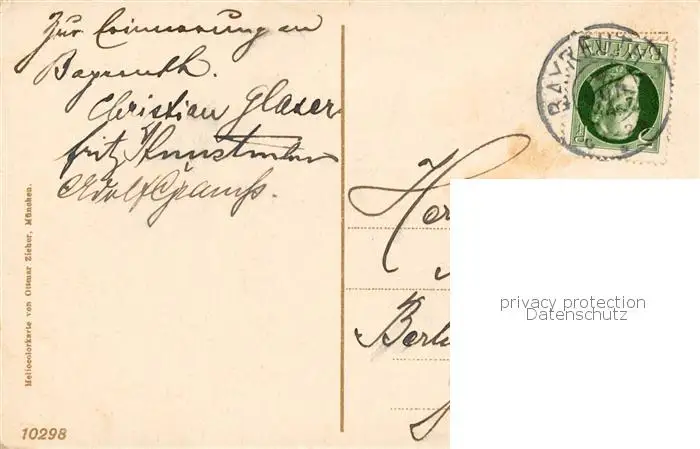 Zur Erinnerung an
Bayreuth.
Christian Glaser
Fritz
Adolf
Her
Berl
BAYREUTH
BAYERN
privacy protection
Datenschutz
Heliocolorkarte von Ottmar Zieher, München.
10298